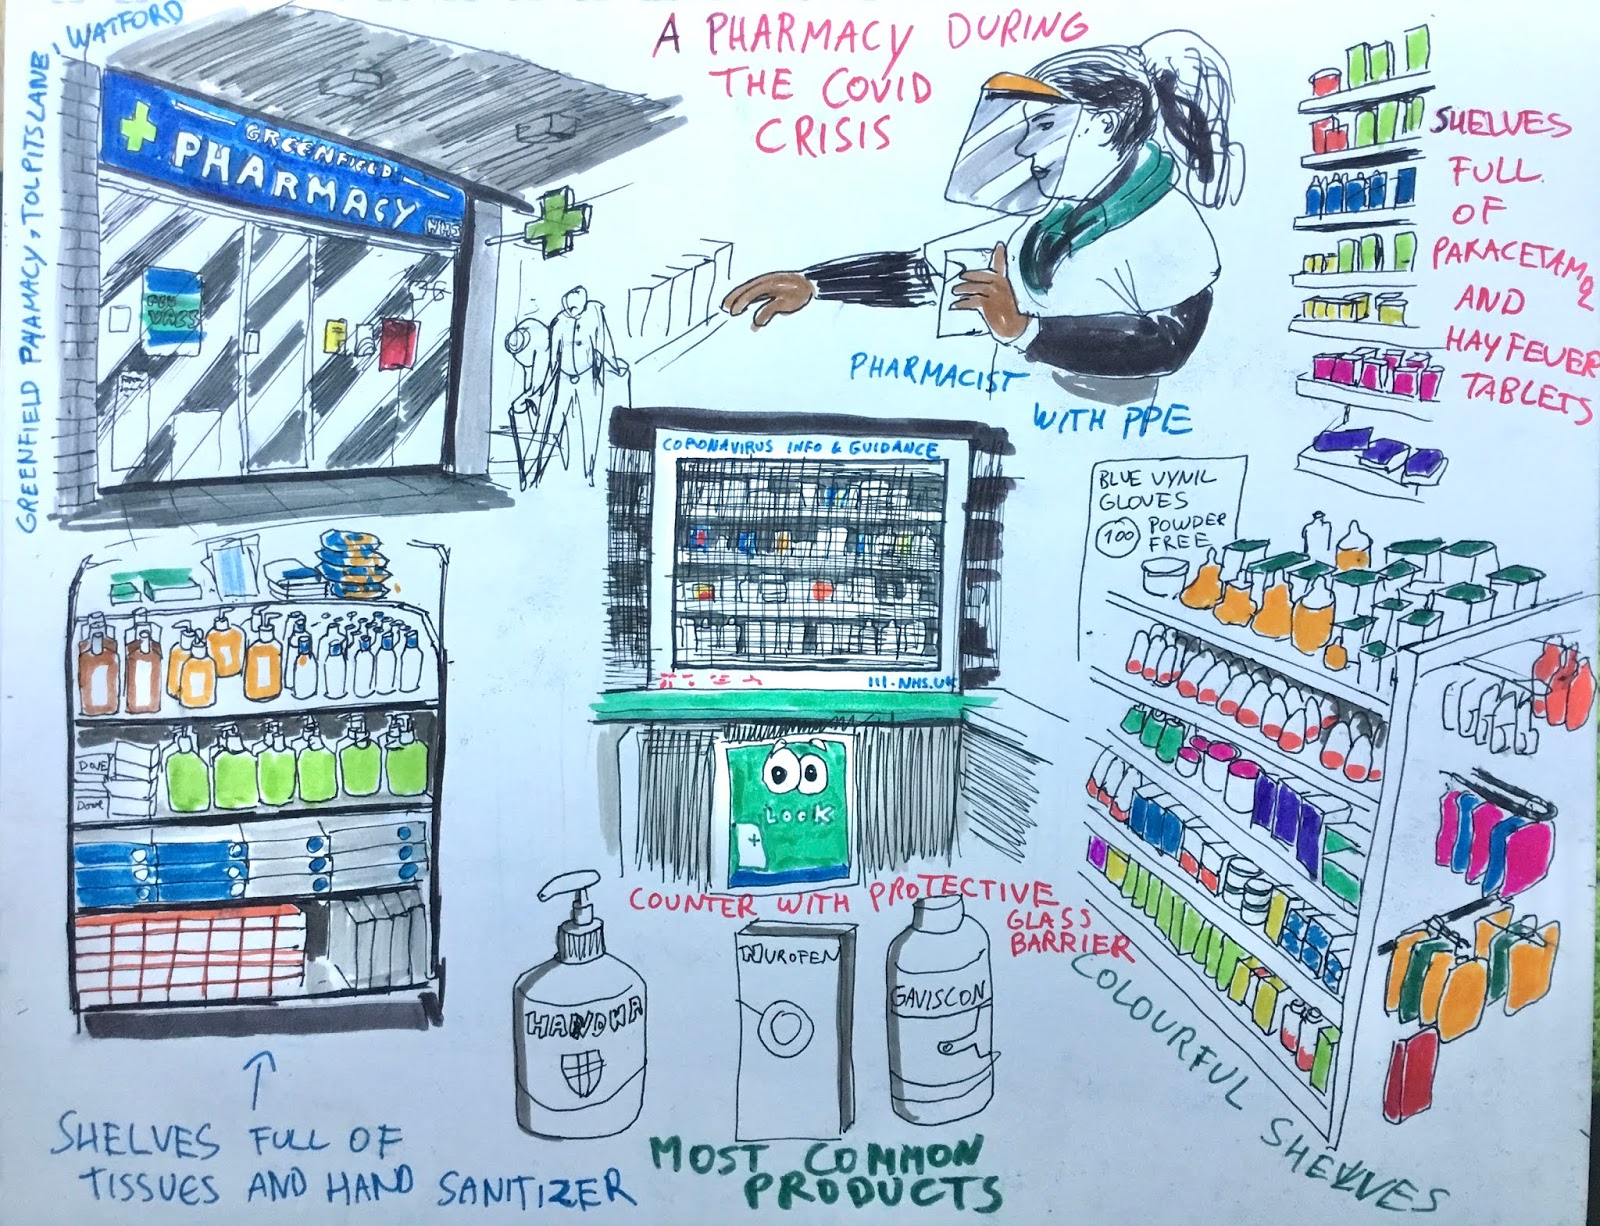 A PHARMACY DURING
THE COVID
CRISIS
GREENFIELD PHAMACY, TOLPITSLANE, WATFORD
GREENFIELD
PHARMACY
NHS
PHARMACIST
WITH PPE
SHELVES
FULL
OF
PARACETAMOL
AND
HAYFEVER
TABLETS
CORONAVIRUS INFO & GUIDANCE
111-NHS.UK
LOOK
COUNTER WITH PROTECTIVE
GLASS
BARRIER
BLUE VYNIL
GLOVES
100 POWDER
FREE
DOVE
DOVE
HANDWA
NUROFEN
GAVISCON
MOST COMMON
PRODUCTS
COLOURFUL SHELVES
SHELVES FULL OF
TISSUES AND HAND SANITIZER